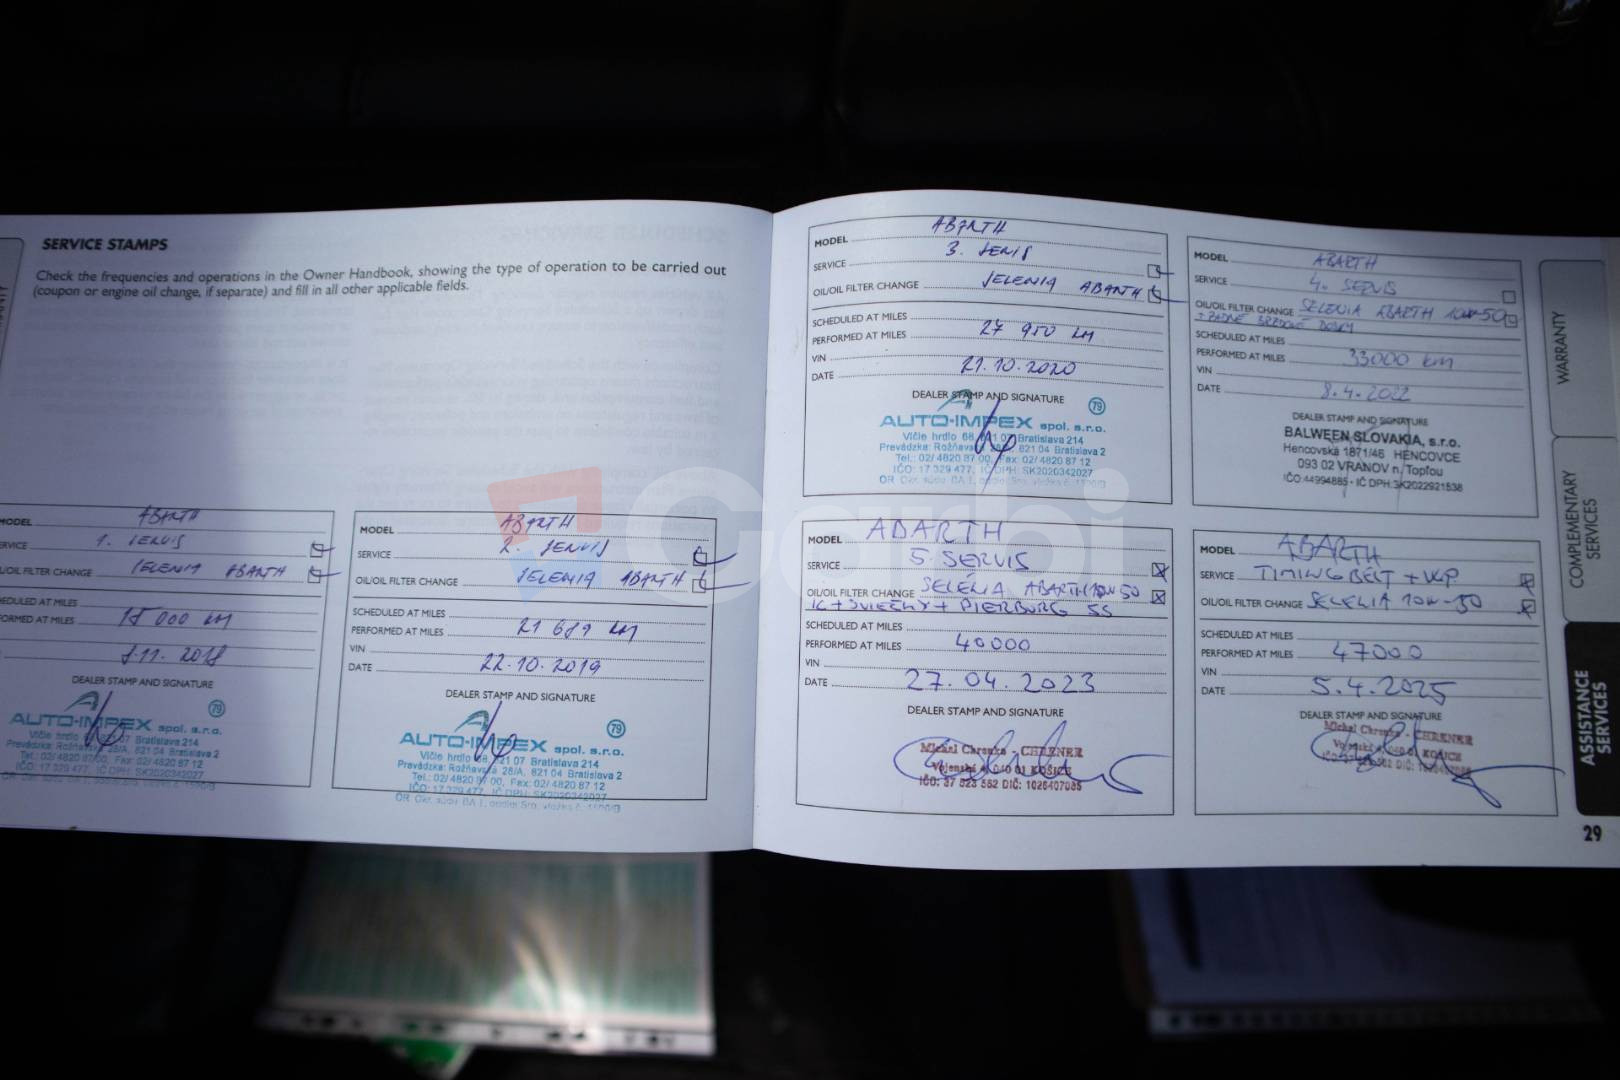 SERVICE STAMPS
Check the frequencies and operations in the Owner Handbook, showing the type of operation to be carried out
(coupon or engine oil change, if separate) and fill in all other applicable fields.
MODEL ABARTH
SERVICE 1. SERVIS
OIL/OIL FILTER CHANGE SELENIA ABARTH
SCHEDULED AT MILES
PERFORMED AT MILES 15 000 KM
8.11. 2018
DEALER STAMP AND SIGNATURE
79
AUTO-IMPEX spol. s.r.o.
Vlčie hrdlo 68, 821 07 Bratislava 214
Prevádzka: Rožňavská 28/A, 821 04 Bratislava 2
Tel.: 02/ 4820 87 00, Fax: 02/ 4820 87 12
IČO: 17 329 477, IČ DPH: SK2020342027
MODEL ABARTH
SERVICE 2. SERVIS
OIL/OIL FILTER CHANGE SELENIA ABARTH
SCHEDULED AT MILES
PERFORMED AT MILES 21 689 KM
VIN
DATE 22.10.2019
DEALER STAMP AND SIGNATURE
79
AUTO-IMPEX spol. s.r.o.
Vlčie hrdlo 68, 821 07 Bratislava 214
Prevádzka: Rožňavská 28/A, 821 04 Bratislava 2
Tel.: 02/ 4820 87 00, Fax: 02/ 4820 87 12
IČO: 17 329 477, IČ DPH: SK2020342027
OR Okr. súdu BA I, oddiel Sro, vložka č.
MODEL ABARTH
SERVICE 3. SERVIS
OIL/OIL FILTER CHANGE SELENIA ABARTH
SCHEDULED AT MILES
PERFORMED AT MILES 27 950 KM
VIN
DATE 21.10.2020
DEALER STAMP AND SIGNATURE
79
AUTO-IMPEX spol. s.r.o.
Vlčie hrdlo 68, 821 07 Bratislava 214
Prevádzka: Rožňavská 28/A, 821 04 Bratislava 2
Tel.: 02/ 4820 87 00, Fax: 02/ 4820 87 12
IČO: 17 329 477, IČ DPH: SK2020342027
OR Okr. súdu BA I, oddiel Sro, vložka č.
MODEL ABARTH
SERVICE 4. SERVIS
OIL/OIL FILTER CHANGE SELENIA ABARTH 10W-50
+ ZADNÉ BRZDOVÉ DOSKY
SCHEDULED AT MILES
PERFORMED AT MILES 33000 km
VIN
DATE 8.4.2022
DEALER STAMP AND SIGNATURE
BALWEEN SLOVAKIA, s.r.o.
Hencovská 1871/46 HENCOVCE
093 02 VRANOV n/Topľou
IČO:44994885 • IČ DPH:SK2022921538
MODEL ABARTH
SERVICE 5. SERVIS
OIL/OIL FILTER CHANGE SELÉNIA ABARTH 10W-50
IC + SVIEČKY + PIERBURG SS
SCHEDULED AT MILES
PERFORMED AT MILES 40000
VIN
DATE 27.04.2023
DEALER STAMP AND SIGNATURE
Michal Chrenka - CHRENER
Vojenská 4, 040 01 KOŠICE
IČO: 37 823 562 DIČ: 1026407085
MODEL ABARTH
SERVICE TIMING BELT + W.P.
OIL/OIL FILTER CHANGE SELENIA 10W-50
SCHEDULED AT MILES
PERFORMED AT MILES 47000
VIN
DATE 5.4.2025
DEALER STAMP AND SIGNATURE
Michal Chrenka - CHRENER
WARRANTY
COMPLEMENTARY SERVICES
ASSISTANCE SERVICES
29
Garbi